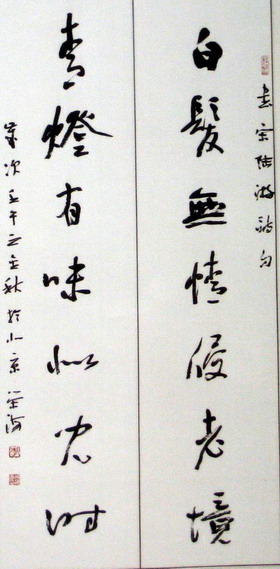 書宋陸游詩句
白髮無情侵老境
青燈有味似兒時
歲次壬午之金秋於北京